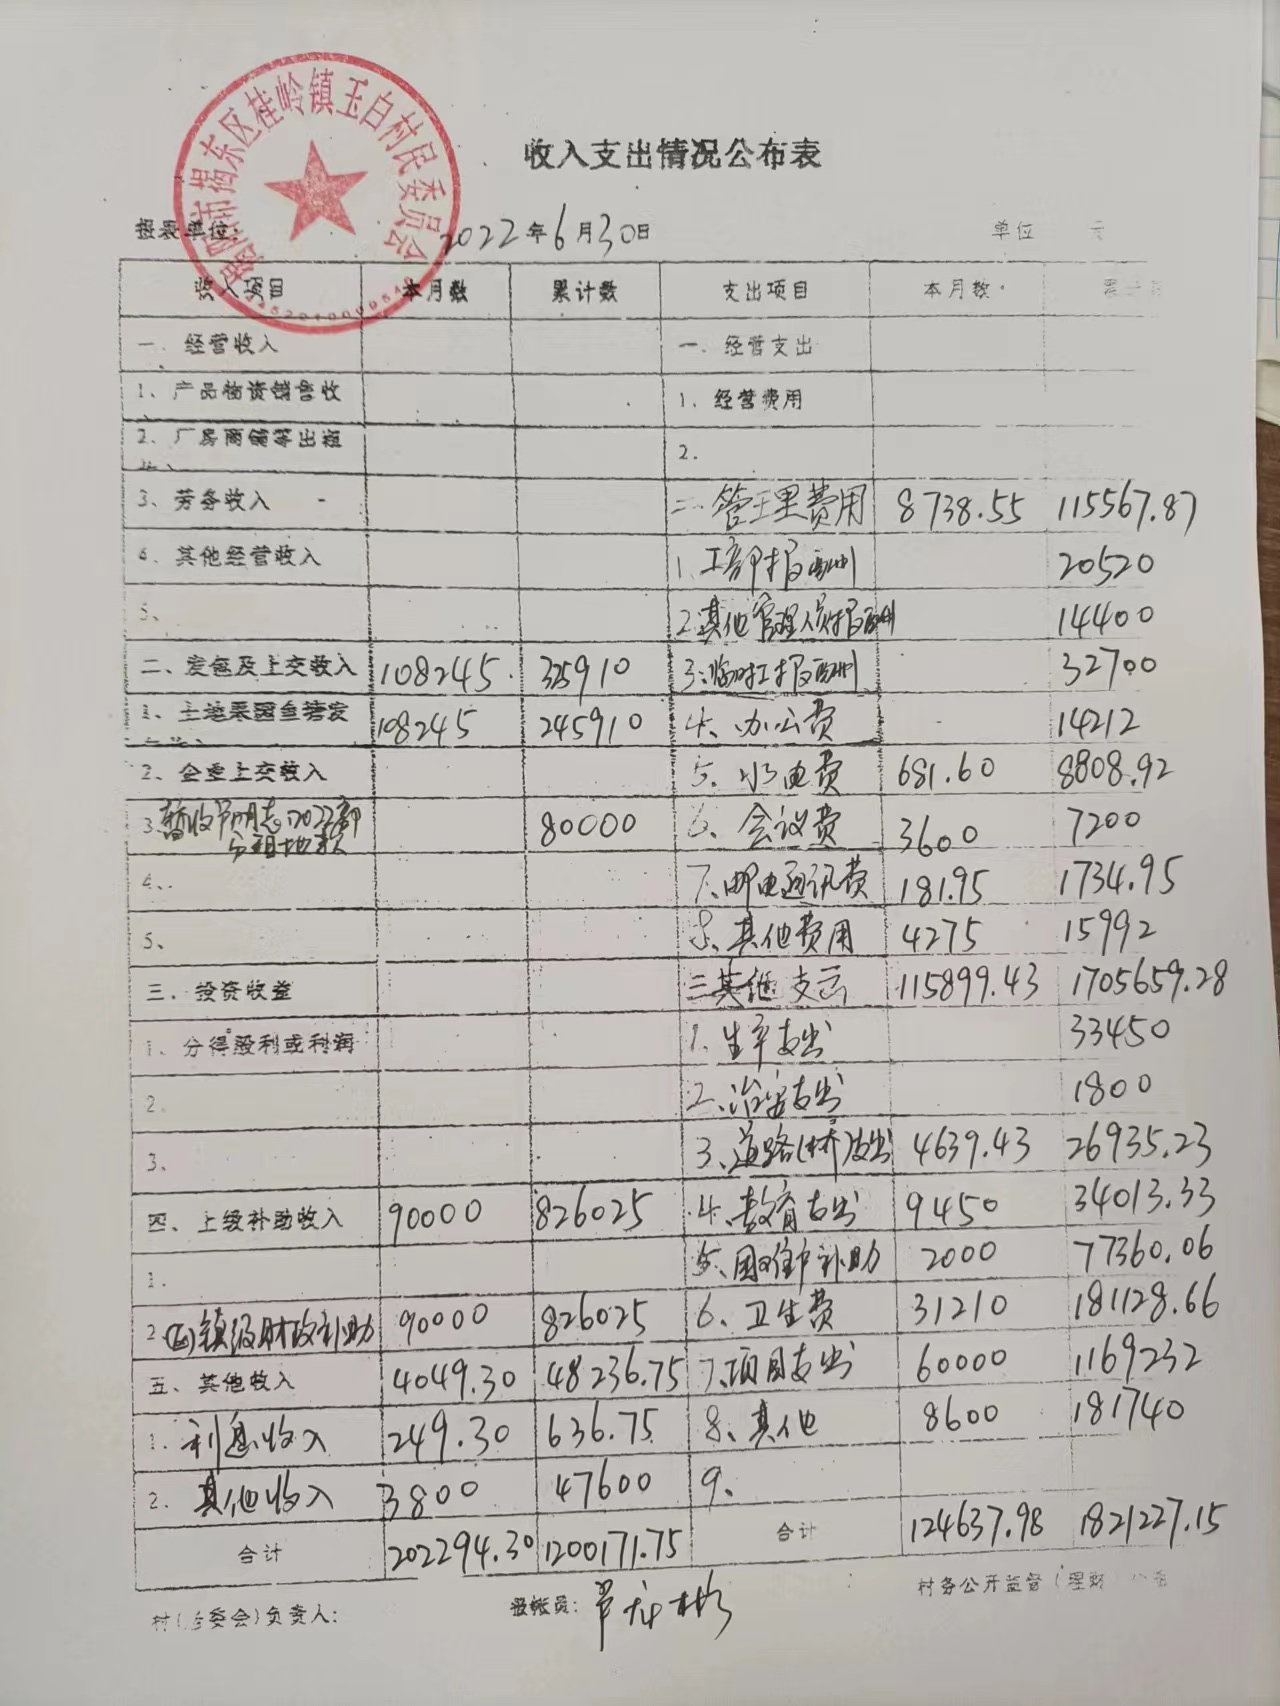 收入支出情况公布表
揭阳市揭东区桂岭镇玉白村民委员会
报表单位: 2022年6月30日 单位 元
收入项目 本月数 累计数 支出项目 本月数 累计
一、经营收入 一、经营支出
1、产品物资销售收 1、经营费用
2、厂房商铺等出租 2.
3、劳务收入 二、管理费用 8738.55 115567.87
4、其他经营收入 1、干部报酬 20520
5、 2.其他管理人员报酬 14400
二、发包及上交收入 108245. 325910 3.临时工报酬 32700
1、土地果园鱼塘发 108245 245910 4、办公费 14212
2、企业上交收入 5、水电费 681.60 8808.92
3、暂收 2022部分租地款 80000 6、会议费 3600 7200
4、 7、邮电通讯费 181.95 1734.95
5、 8、其他费用 4275 15992
三、投资收益 三其他支出 115899.43 1705659.28
1、分得股利或利润 1、生产支出 33450
2. 2、治安支出 1800
3. 3、道路(桥)支出 4639.43 26935.23
四、上级补助收入 90000 826025 4、教育支出 9450 34013.33
1. 5、困难户补助 2000 77360.06
2 镇级财政补助 90000 826025 6、卫生费 31210 181128.66
五、其他收入 4049.30 48236.75 7、项目支出 60000 1169232
1. 利息收入 249.30 636.75 8、其他 8600 181740
2. 其他收入 3800 47600 9、
合计 202294.30 1200171.75 合计 124637.98 1821227.15
村(居委会)负责人: 报帐员: 村务公开监督(理财)小组